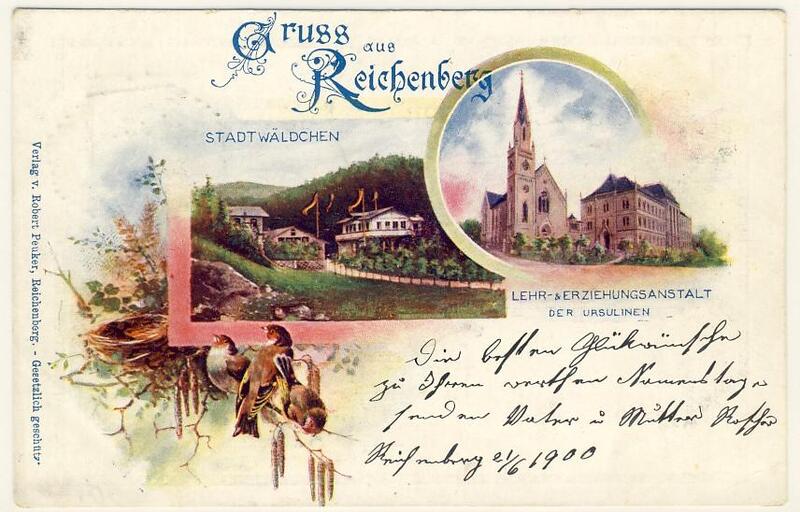 Gruss aus
Reichenberg
STADTWÄLDCHEN
LEHR- & ERZIEHUNGSANSTALT
DER URSULINEN
Die besten Glükwünsche
zu Ihren werthen Namenstage
senden Vater u Mutter
Reichenberg 21/6 1900
Verlag v. Robert Peuker, Reichenberg. - Gesetzlich geschützt.